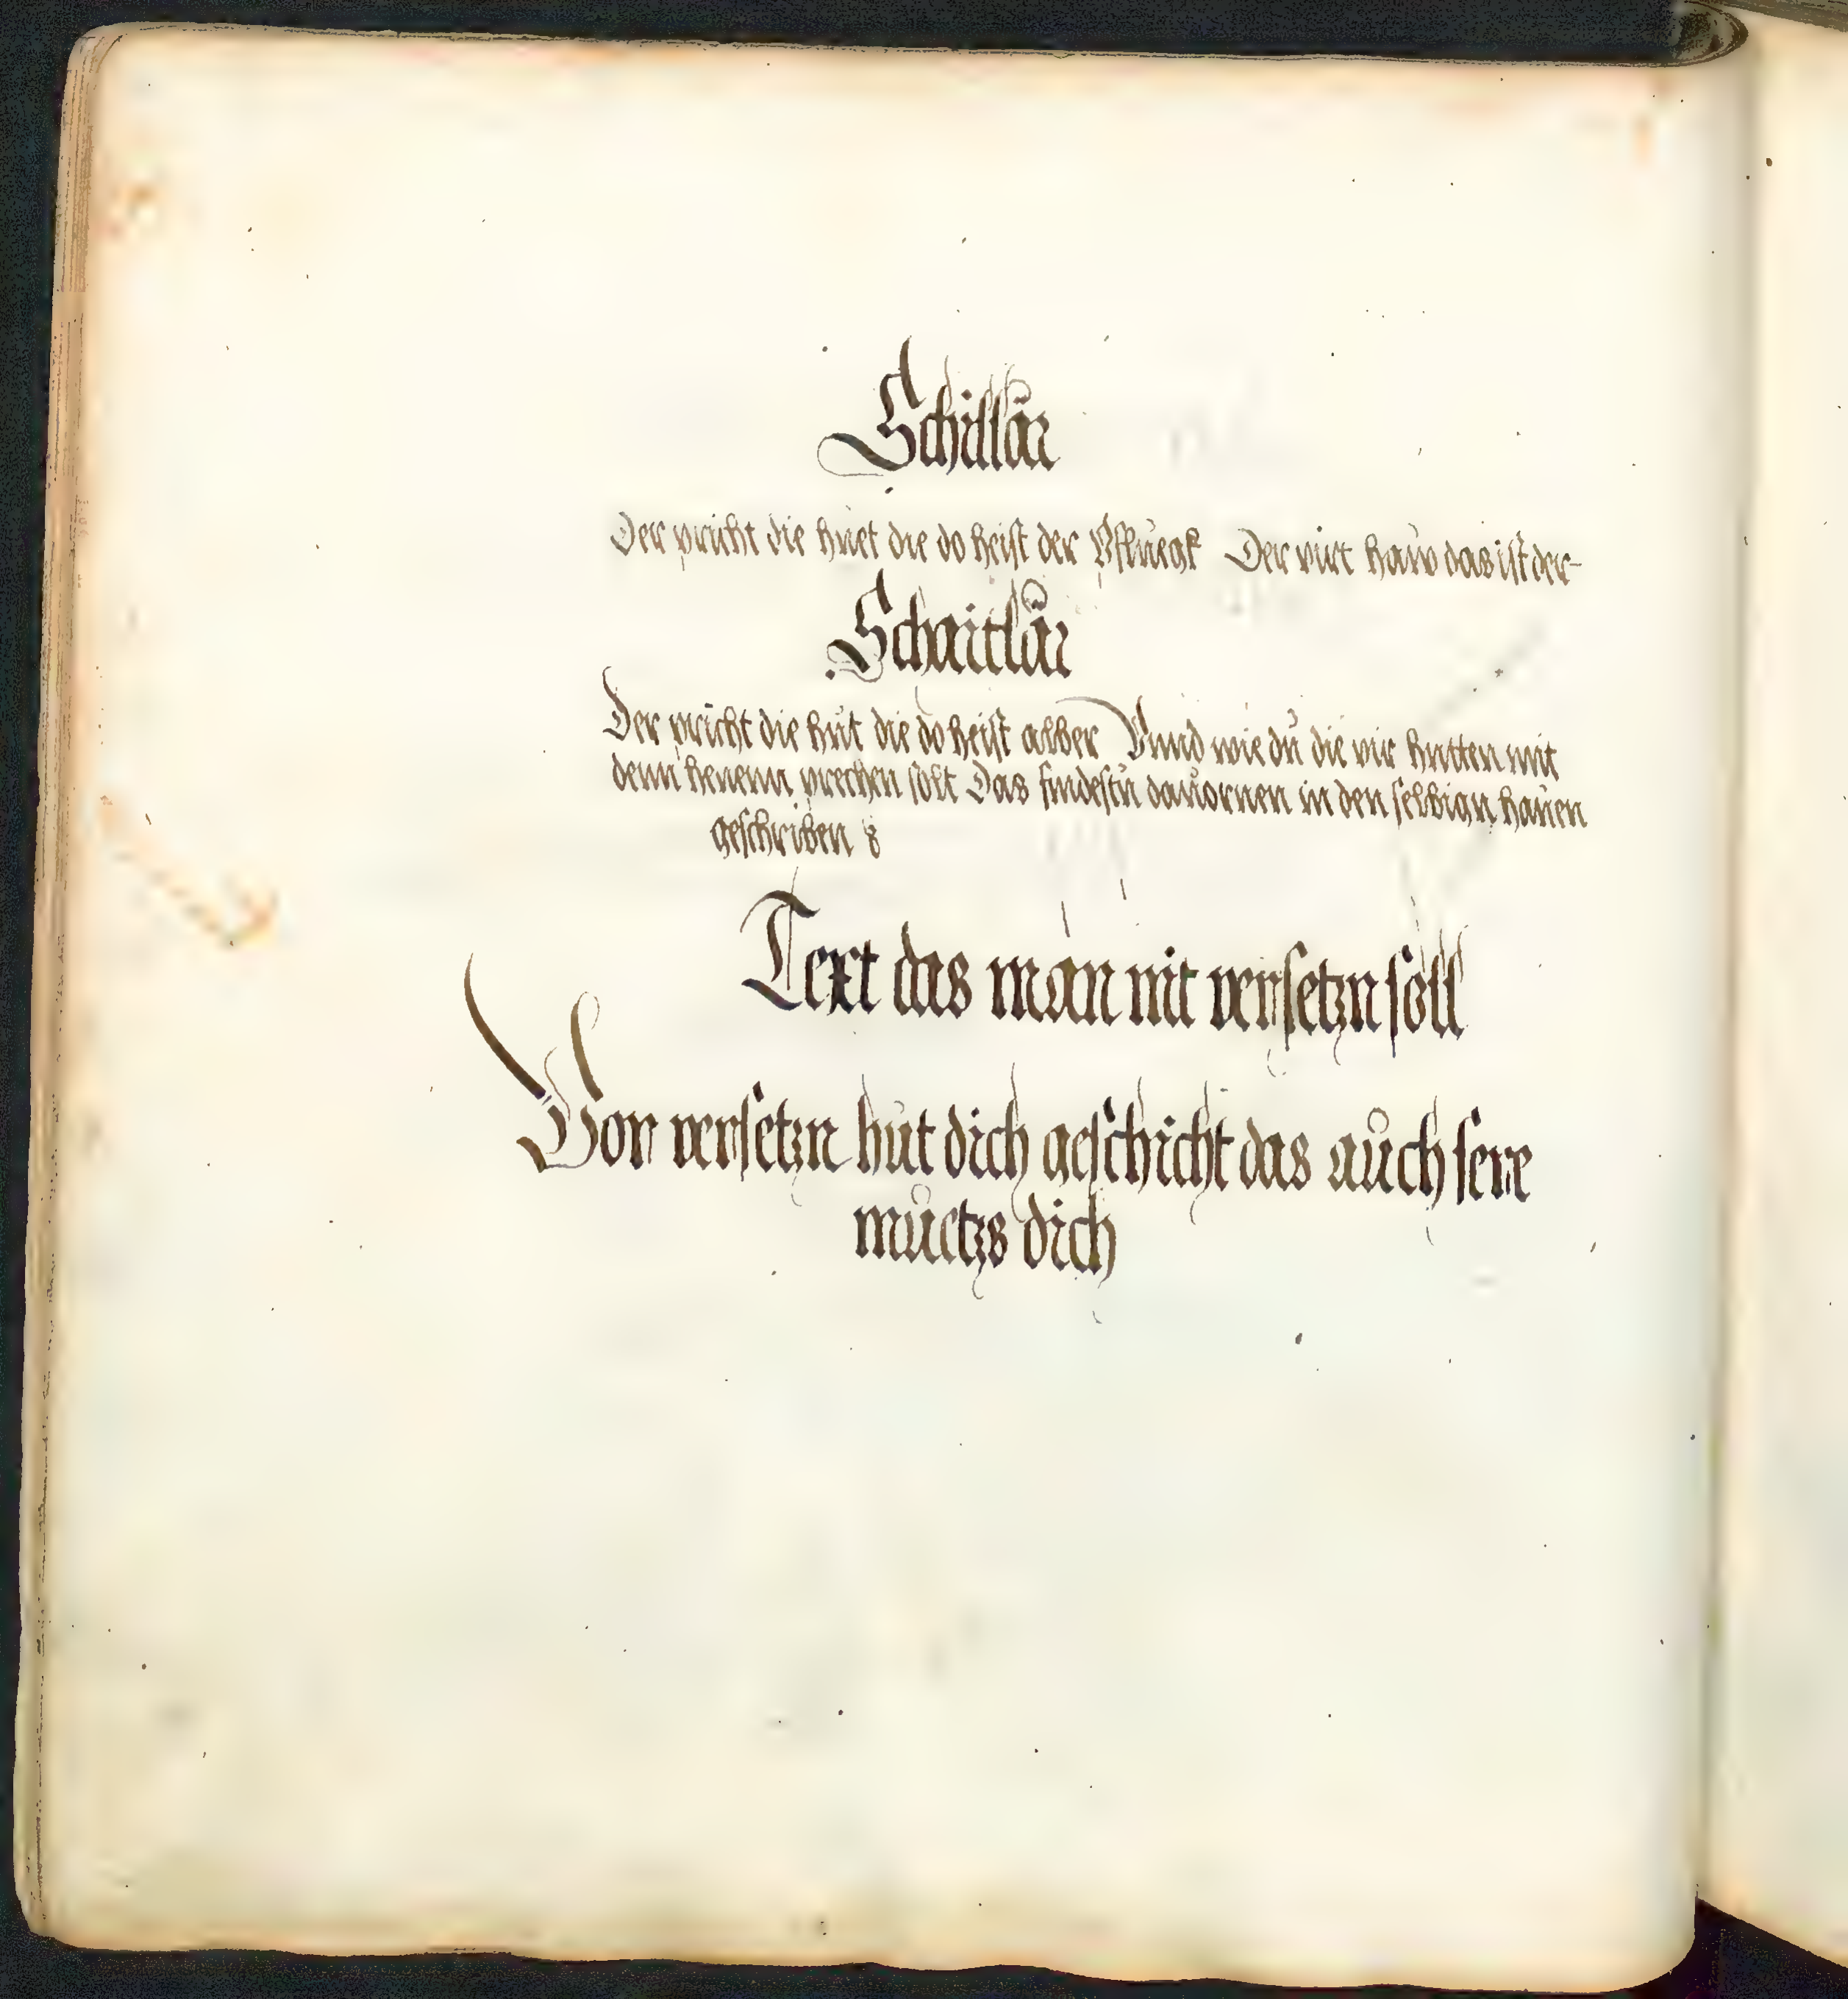 Schillär
Der pricht die huet die do heist der Pfluegk Der virt haw das ist der
Schaitlär
Der pricht die hut die do heist alber Vnnd wie du die vir hutten mit
denn henenn prechen solt Das findestu dauornen in den selbign hauen
geschriben
Text das man nit versetzn soll
Vor versetzn hut dich geschicht das auch sere
muetzs dich